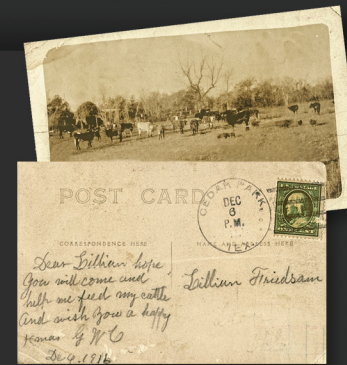 POST CARD
CEDAR PARK
DEC
6
P.M.
TEX.
CORRESPONDENCE HERE
NAME AND ADDRESS HERE
Dear Lillian hope
you will come and
help me feed my cattle
and wish you a happy
xmas G W C
Dec 6, 1916
Lillian Friedsam